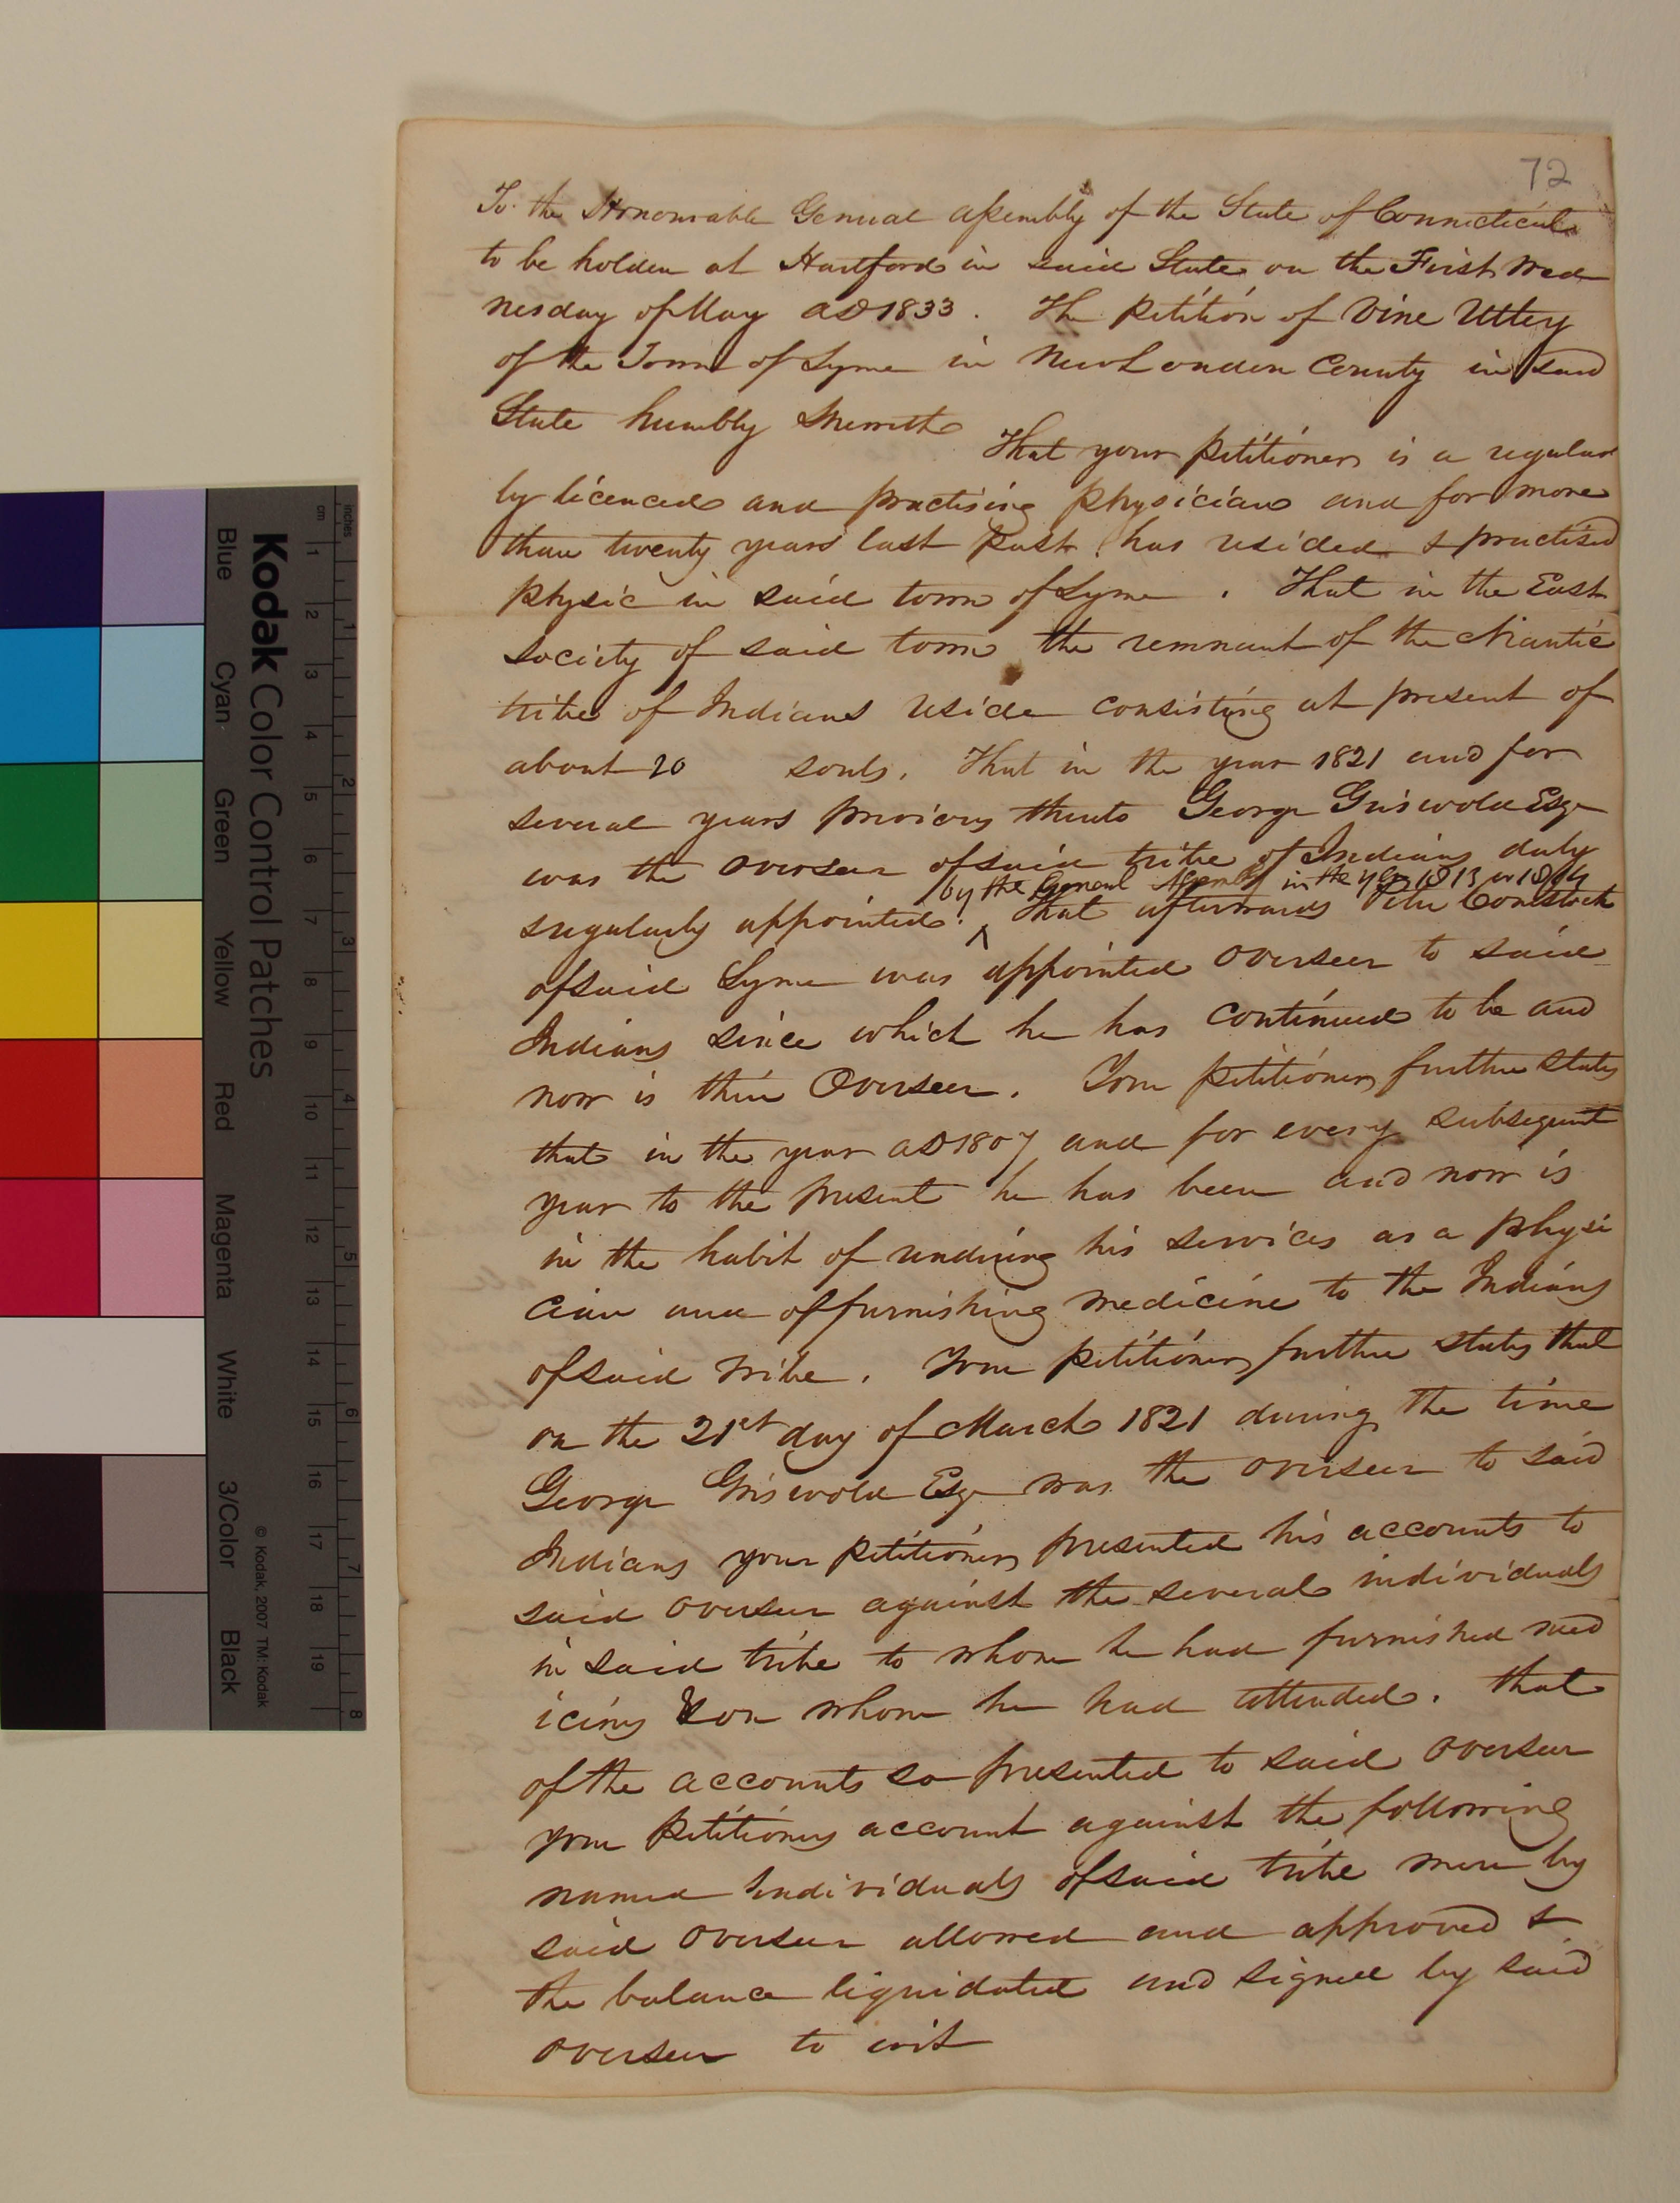 72
To the Honourable General Assembly of the State of Connecticut
to be holden at Hartford in said State on the First Wed
nesday of May AD 1833. The Petition of Vine Utley
of the Town of Lyme in New London County in said
State humbly Sheweth
That your petitioner is a regular
ly licenced and practising physician and for more
than twenty years last past has resided & practised
physic in said town of Lyme. That in the East
society of said town the remnant of the Niantic
tribe of Indians reside consisting at present of
about 20 souls. That in the year 1821 and for
several years previous thereto George Griswold Esqr
was the overseer of said tribe of Indians duly
by the General Assembly in the year 1813 or 1814
& regularly appointed. ^ That afterwards Peter Comstock
of said Lyme was appointed overseer to said
Indians since which he has continued to be and
now is their Overseer. Your petitioner further states
that in the year AD 1807 and for every subsequent
year to the present he has been and now is
in the habit of rendering his services as a physi
cian and of furnishing medicine to the Indians
of said tribe. Your petitioner further states that
on the 21st day of March 1821 during the time
George Griswold Esqr was the overseer to said
Indians your petitioner presented his accounts to
said overseer against the several individuals
in said tribe to whom he had furnished med
icines & on whom he had attended. That
of the accounts so presented to said overseer
your petitioners account against the following
named individuals of said tribe were by
said overseer allowed and approved &
the balance liquidated and signed by said
overseer to wit
Kodak Color Control Patches
Blue Cyan Green Yellow Red Magenta White 3/Color Black
© Kodak, 2007 TM: Kodak
inches 1 2 3 4 5 6 7 8
cm 1 2 3 4 5 6 7 8 9 10 11 12 13 14 15 16 17 18 19